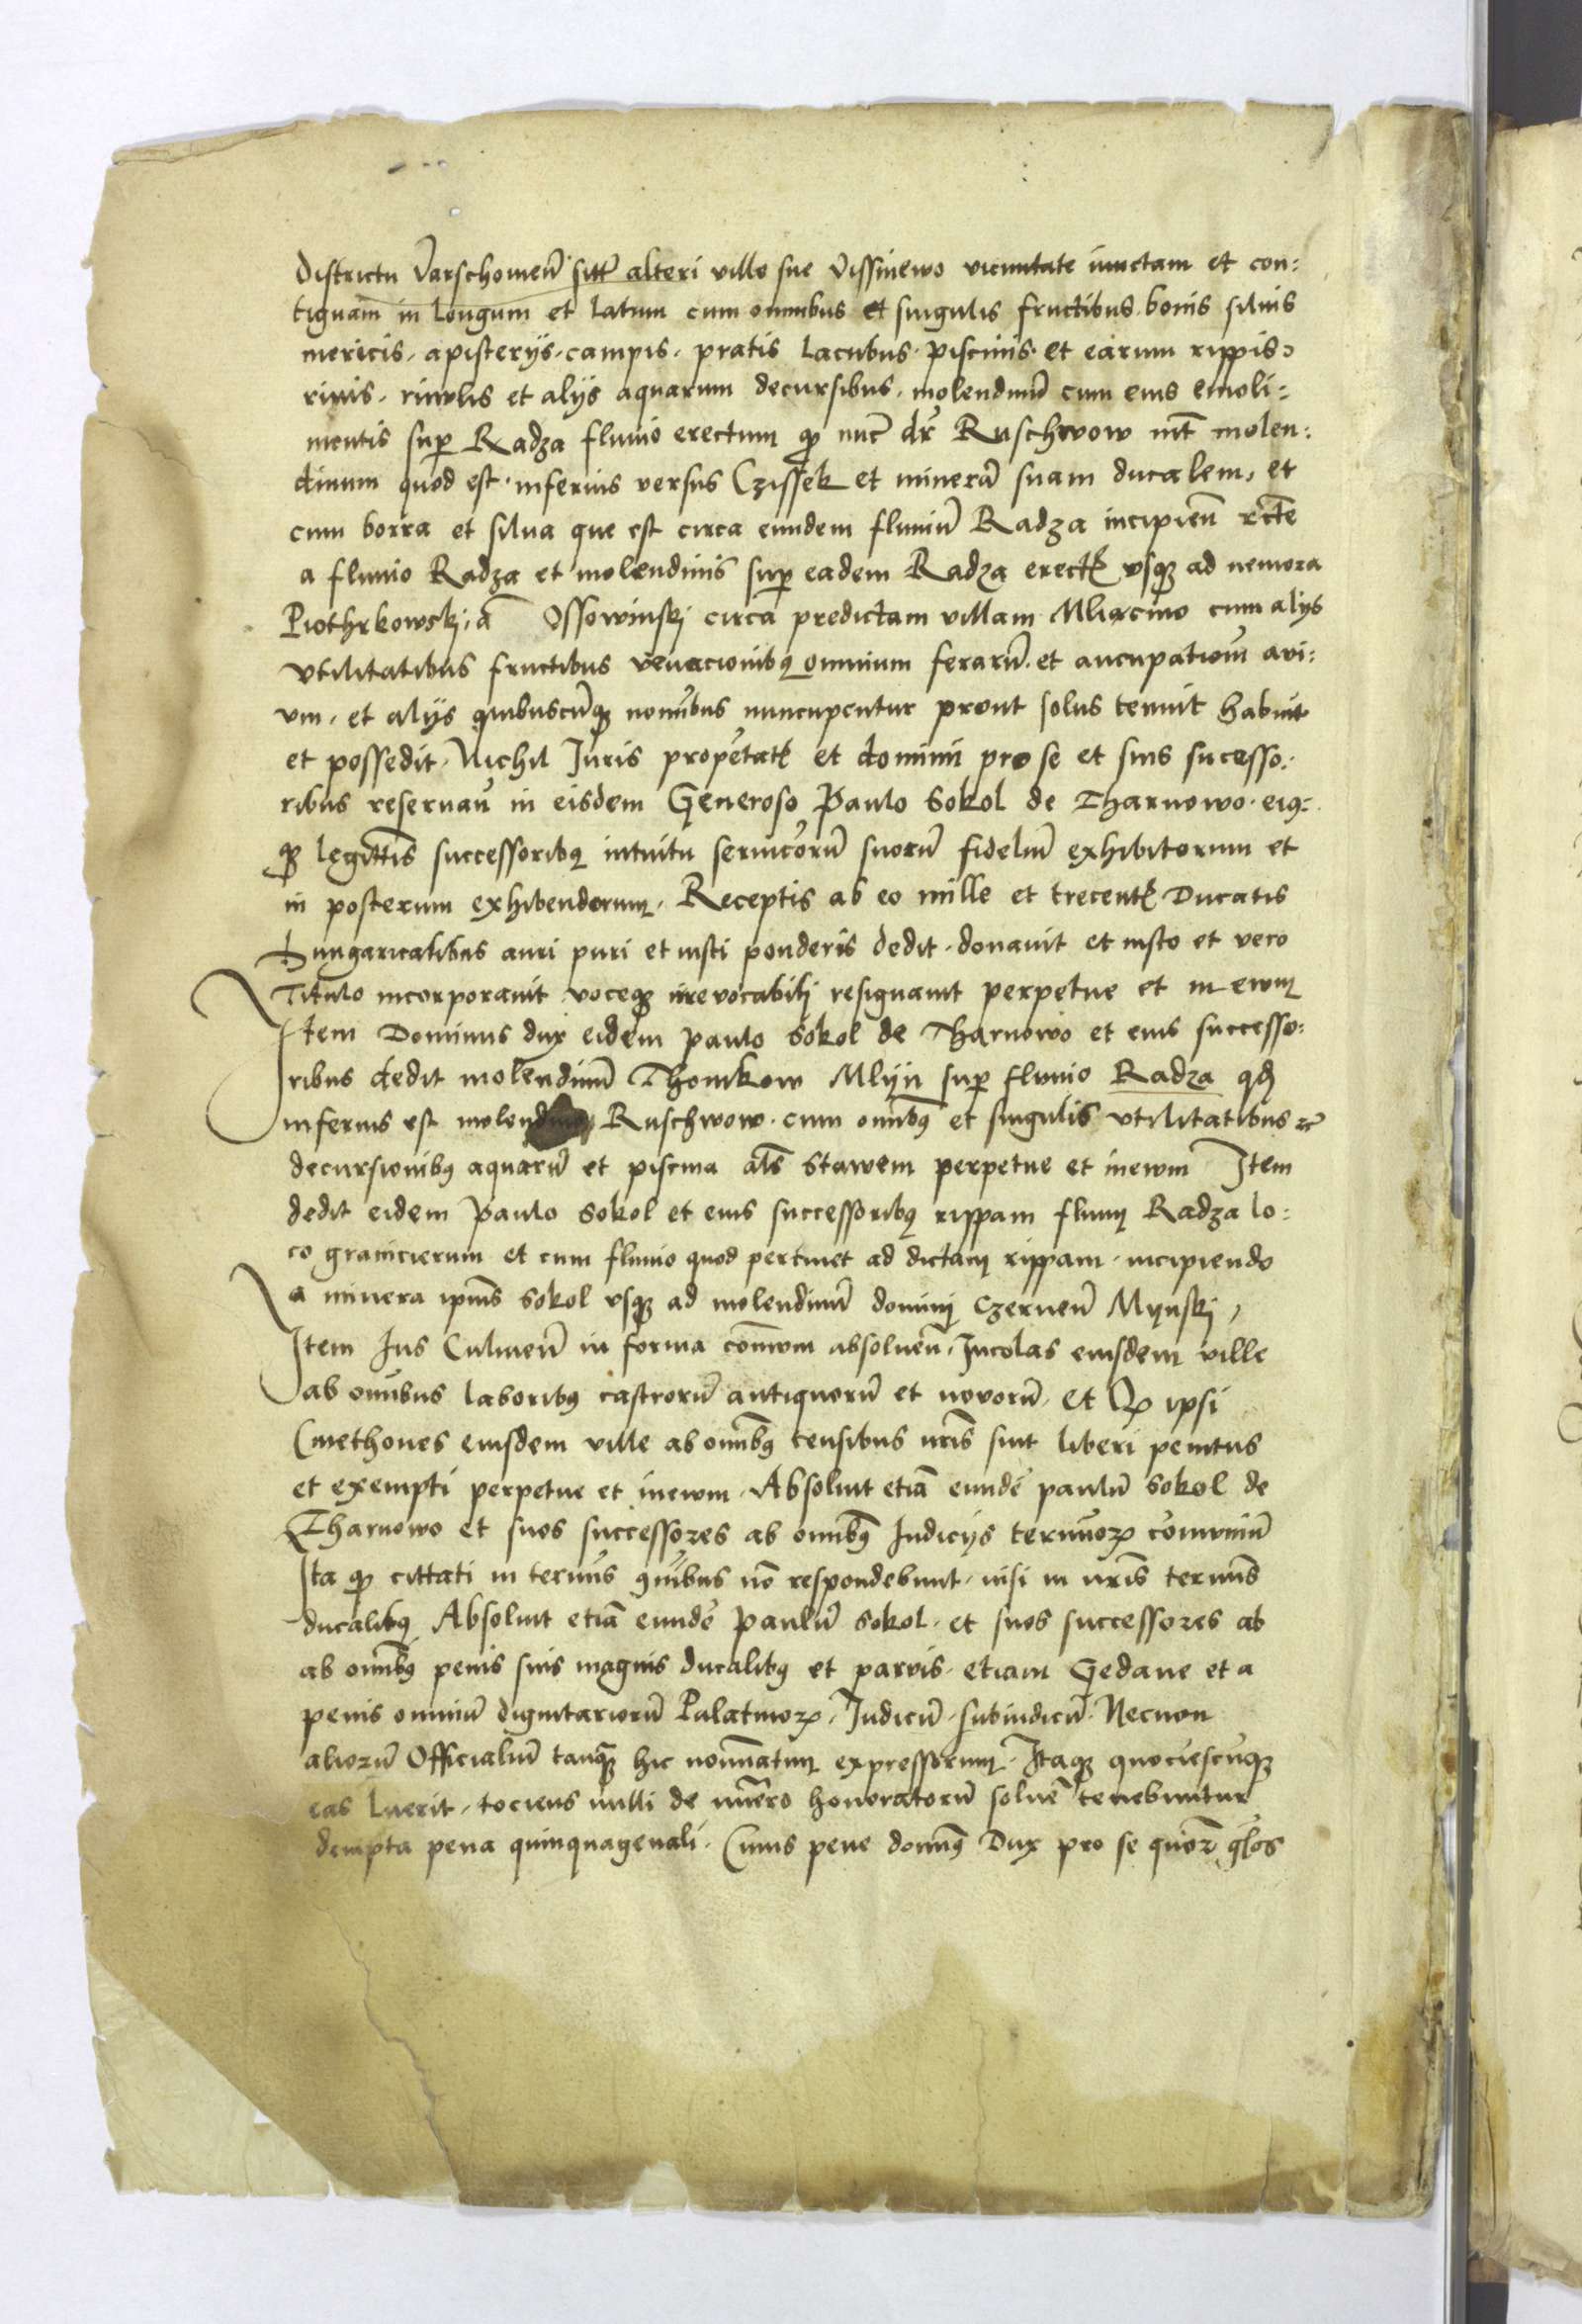 districtu Varschouieñ sitã alteri ville sue Vissinewo vicinitate iunctam et con:
tiguam in longum et latum cum omnibus et singulis fructibus bonis silvis
mericis, apisterijs, campis, pratis lacubus, piscinis et earum rippis
rivis, rivulis et alijs aquarum decursibus, molendinũ cum eius emoli:
mentis sup Radza fluvio erectum qd nũc dr̃ Ruschwow int̃ molen:
dinum quod est inferius versus Czissek et minerã suam ducalem, et
cum borra et silva que est circa eundem fluviũ Radza incipieñ rcte
a fluvio Radza et molendinis sup eadem Radza erectꝭ vsqꝫ ad nemora
Piothrkowskj, ã Ossowinskj circa predictam villam Mliscino cum alijs
vtilitatibus fructibus venacionibꝰ omnium ferarũ et aucupationũ avi:
um, et alijs quibuscũqꝫ nomĩbus nuncupentur prout solus tenuit habuit
et possedit, Nichil Juris propetatꝭ et dominii pro se et suis sucesso:
ribus reservañ in eisdem Generoso Paulo Sokol de Tharnowo eiꝰ:
qꝫ legittĩs successoribꝰ intuitu serviciorũ suorũ fideliũ exhibitorum et
in posterum exhibendorum, Receptis ab eo mille et trecentꝭ Ducatis
Hungaricalibus auri puri et iusti ponderis dedit, donavit et iusto et vero
Titulo incorporavit voceqꝫ irrevocabilj resignavit perpetue et in ewm
Item Dominus dux eidem paulo Sokol de Tharnowo et eius successo:
ribus dedit molendinũ Thomkow Mlijn sup fluvio Radza qd
inferius est molendino Ruschwow cum omĩbꝰ et singulis vtilitatibus
decursionibꝰ aquarũ et piscina als̃ Stawem perpetue et inewm Item
dedit eidem Paulo Sokol et eius successoribꝰ rippam fluvij Radza lo:
co granicierum et cum fluvio quod pertinet ad dictam rippam, incipiendo
a minera ipsius Sokol vsqꝫ ad molendinũ dominj Czerneñ Mynskj,
Item Jus Culmeñ in forma com̃um absolveñ, Incolas eiusdem ville
ab omĩbus laboribꝰ castrorũ antiquorũ et novorũ, et Qꝫ ipsi
Cmethones eiusdem ville ab omĩbꝰ censibus nr̃is sint liberi penitus
et exempti perpetue et inewm, Absolvit etiã eundẽ paulũ Sokol de
Tharnowo et suos successores ab omĩbꝰ Judicijs terminoꝝ com̃uniũ
Ita qꝫ cittati in termĩs qm̃ibus nõ respondebunt, nisi in nr̃is termĩs
ducalibꝰ Absolvit etiã eundẽ Paulũ Sokol, et suos successores ab
ab omĩbꝰ penis suis magnis ducalibꝰ et parvis, etiam Gedane et a
penis omniũ dignitariorũ Palatinoꝝ, Judicũ, subiudicũ, Necnon
aliorũ Officialiũ tanqꝫ hic nominatim expressorum, Itaqꝫ quociescũqꝫ
eas luerit, tociens nulli de nũero honoratorũ solvẽ tenebuntur
dempta pena quinquagenali, Cuius pene domĩꝰ Dux pro se